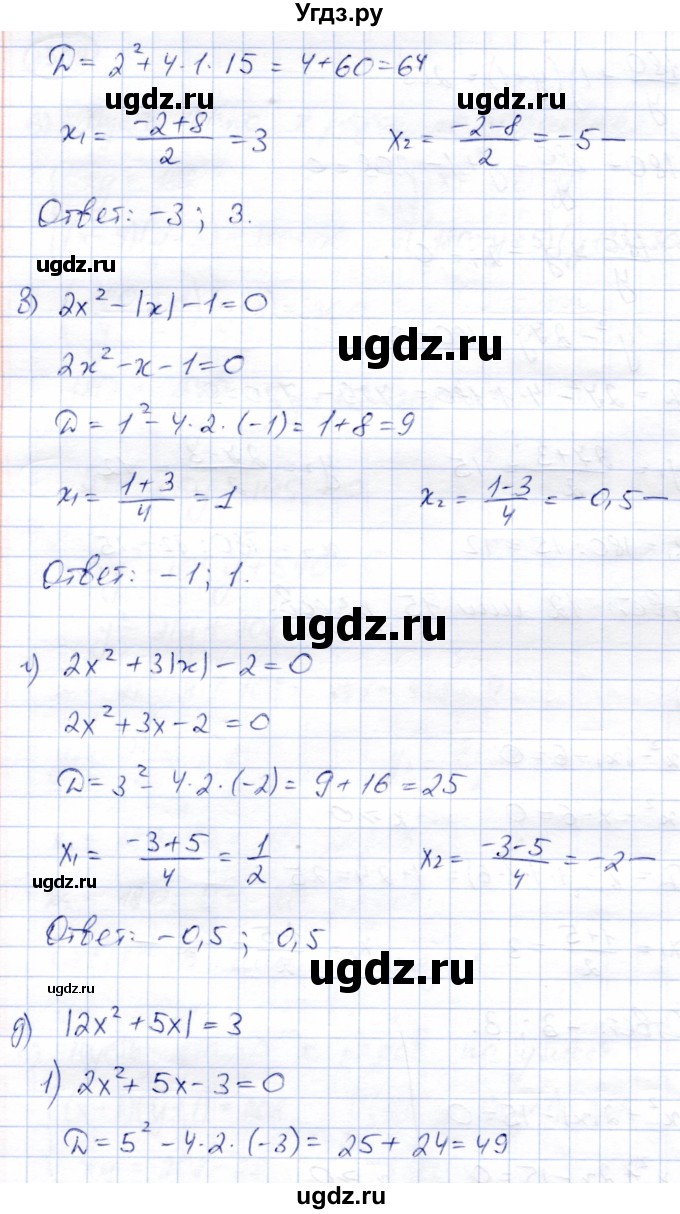 Угдз.ру
D = 2² + 4·1·15 = 4+60 = 64
ugdz.ru ugdz.ru
x₁ = (-2+8)/2 = 3 x₂ = (-2-8)/2 = -5 —
Ответ: -3; 3.
ugdz.ru
в) 2x² - |x| - 1 = 0
ugdz.ru
2x² - x - 1 = 0
D = 1² - 4·2·(-1) = 1+8 = 9
x₁ = (1+3)/4 = 1 x₂ = (1-3)/4 = -0,5 —
Ответ: -1; 1.
ugdz.ru
г) 2x² + 3|x| - 2 = 0
2x² + 3x - 2 = 0
D = 3² - 4·2·(-2) = 9 + 16 = 25
x₁ = (-3+5)/4 = 1/2 x₂ = (-3-5)/4 = -2 —
ugdz.ru
Ответ: -0,5; 0,5
ugdz.ru
ugdz.ru
д) |2x² + 5x| = 3
1) 2x² + 5x - 3 = 0
D = 5² - 4·2·(-3) = 25 + 24 = 49
ugdz.ru